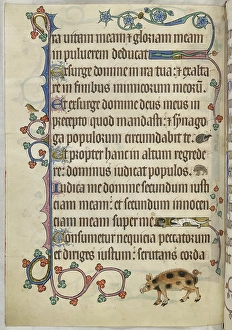 ra uitam meam ⁊ gloriam meam
in puluerem deducat
Exsurge domine in ira tua: ⁊ exalta
re in finibus inimicorum meorū.
Et exsurge domine deus meus in
precepto quod mandasti: ⁊ synago
ga populorum circumdabit te.
Et propter hanc in altum regrede
re: dominus iudicat populos.
Iudica me domine secundum iusti
ciam meam: et secundum innocen
ciam meam super me
Consumetur nequicia peccatorum
et diriges iustum: scrutans corda